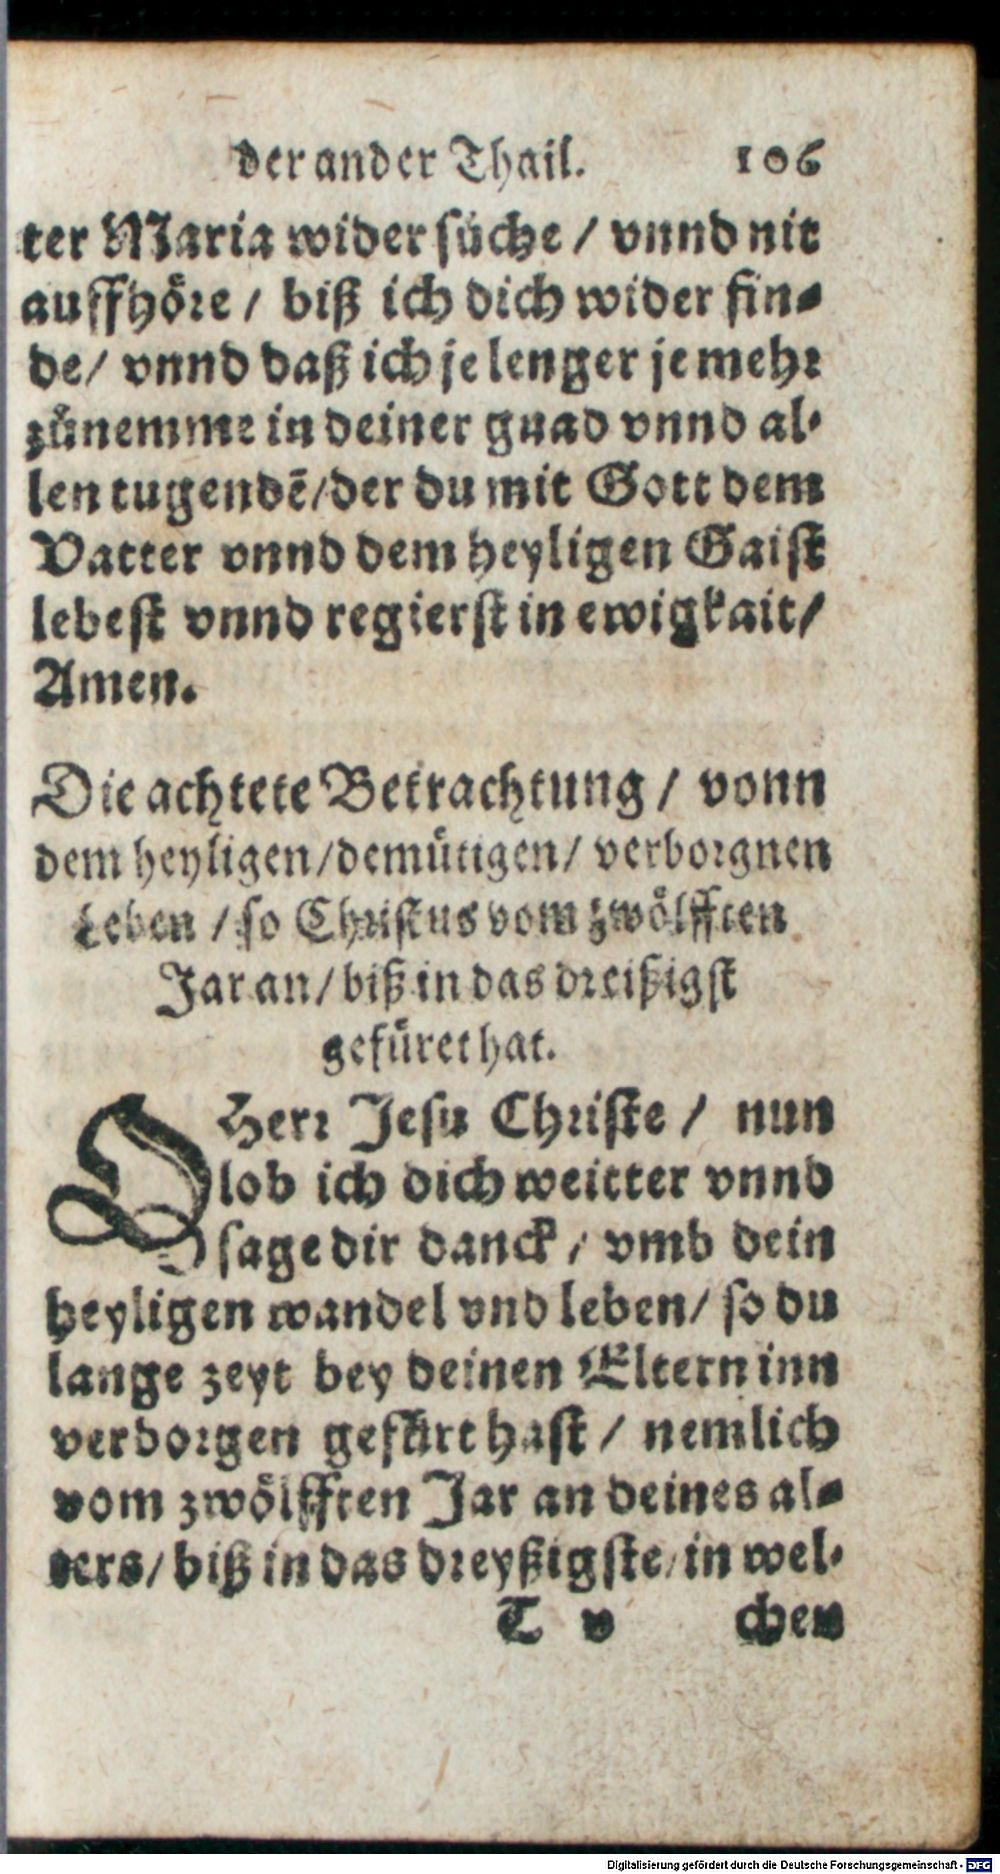 der ander Thail. 106
ter Maria wider sůche / vnnd nit
auffhöre / biß ich dich wider fin-
de / vnnd daß ich je lenger je mehr
zůnemme in deiner gnad vnnd al-
len tugendẽ / der du mit Gott dem
Vatter vnnd dem heyligen Gaist
lebest vnnd regierst in ewigkait /
Amen.
Die achtete Betrachtung / vonn
dem heyligen / demütigen / verborgnen
Leben / so Christus vom zwölfften
Jar an / biß in das dreißigst
gefüret hat.
O Herr Jesu Christe / nun
lob ich dich weitter vnnd
sage dir danck / vmb dein
heyligen wandel vnd leben / so du
lange zeyt bey deinen Eltern inn
verborgen gefůrt hast / nemlich
vom zwölfften Jar an deines al-
ters / biß in das dreyßigste / in wel-
T v chen
Digitalisierung gefördert durch die Deutsche Forschungsgemeinschaft - DFG